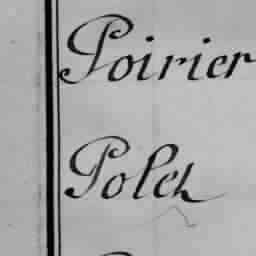 Poirier
Polet